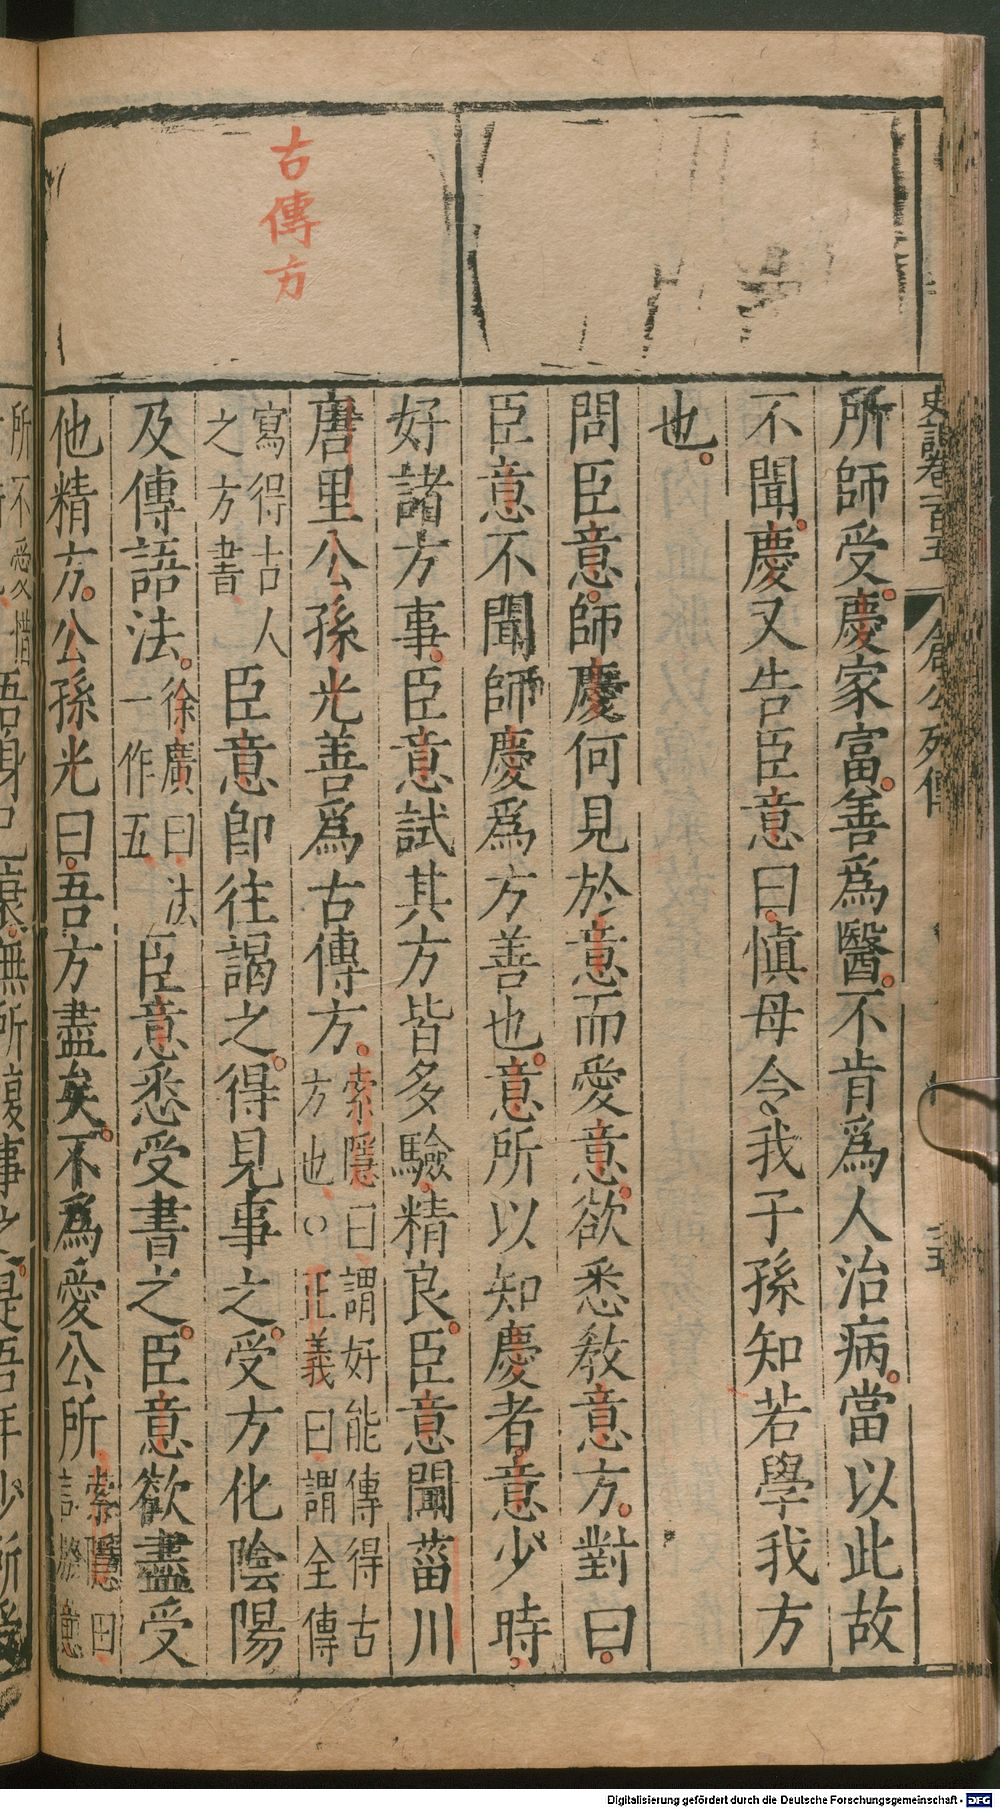 史記卷一百五 倉公列傳
古傳方
所師受慶家富善爲醫不肯爲人治病當以此故
不聞慶又告臣意曰愼毋令我子孫知若學我方
也
問臣意師慶何見於意而愛意欲悉敎意方對曰
臣意不聞師慶爲方善也意所以知慶者意少時
好諸方事臣意試其方皆多驗精良臣意聞菑川
唐里公孫光善爲古傳方索隱曰謂好能傳得古
方也○正義曰謂全傳
寫得古人
之方書臣意卽往謁之得見事之受方化陰陽
及傳語法徐廣曰法
一作五臣意悉受書之臣意欲盡受
他精方公孫光曰吾方盡矣不爲愛公所索隱曰
言於意
所不愛惜
吾身已衰無所復事之是吾年少所受
Digitalisierung gefördert durch die Deutsche Forschungsgemeinschaft - DFG